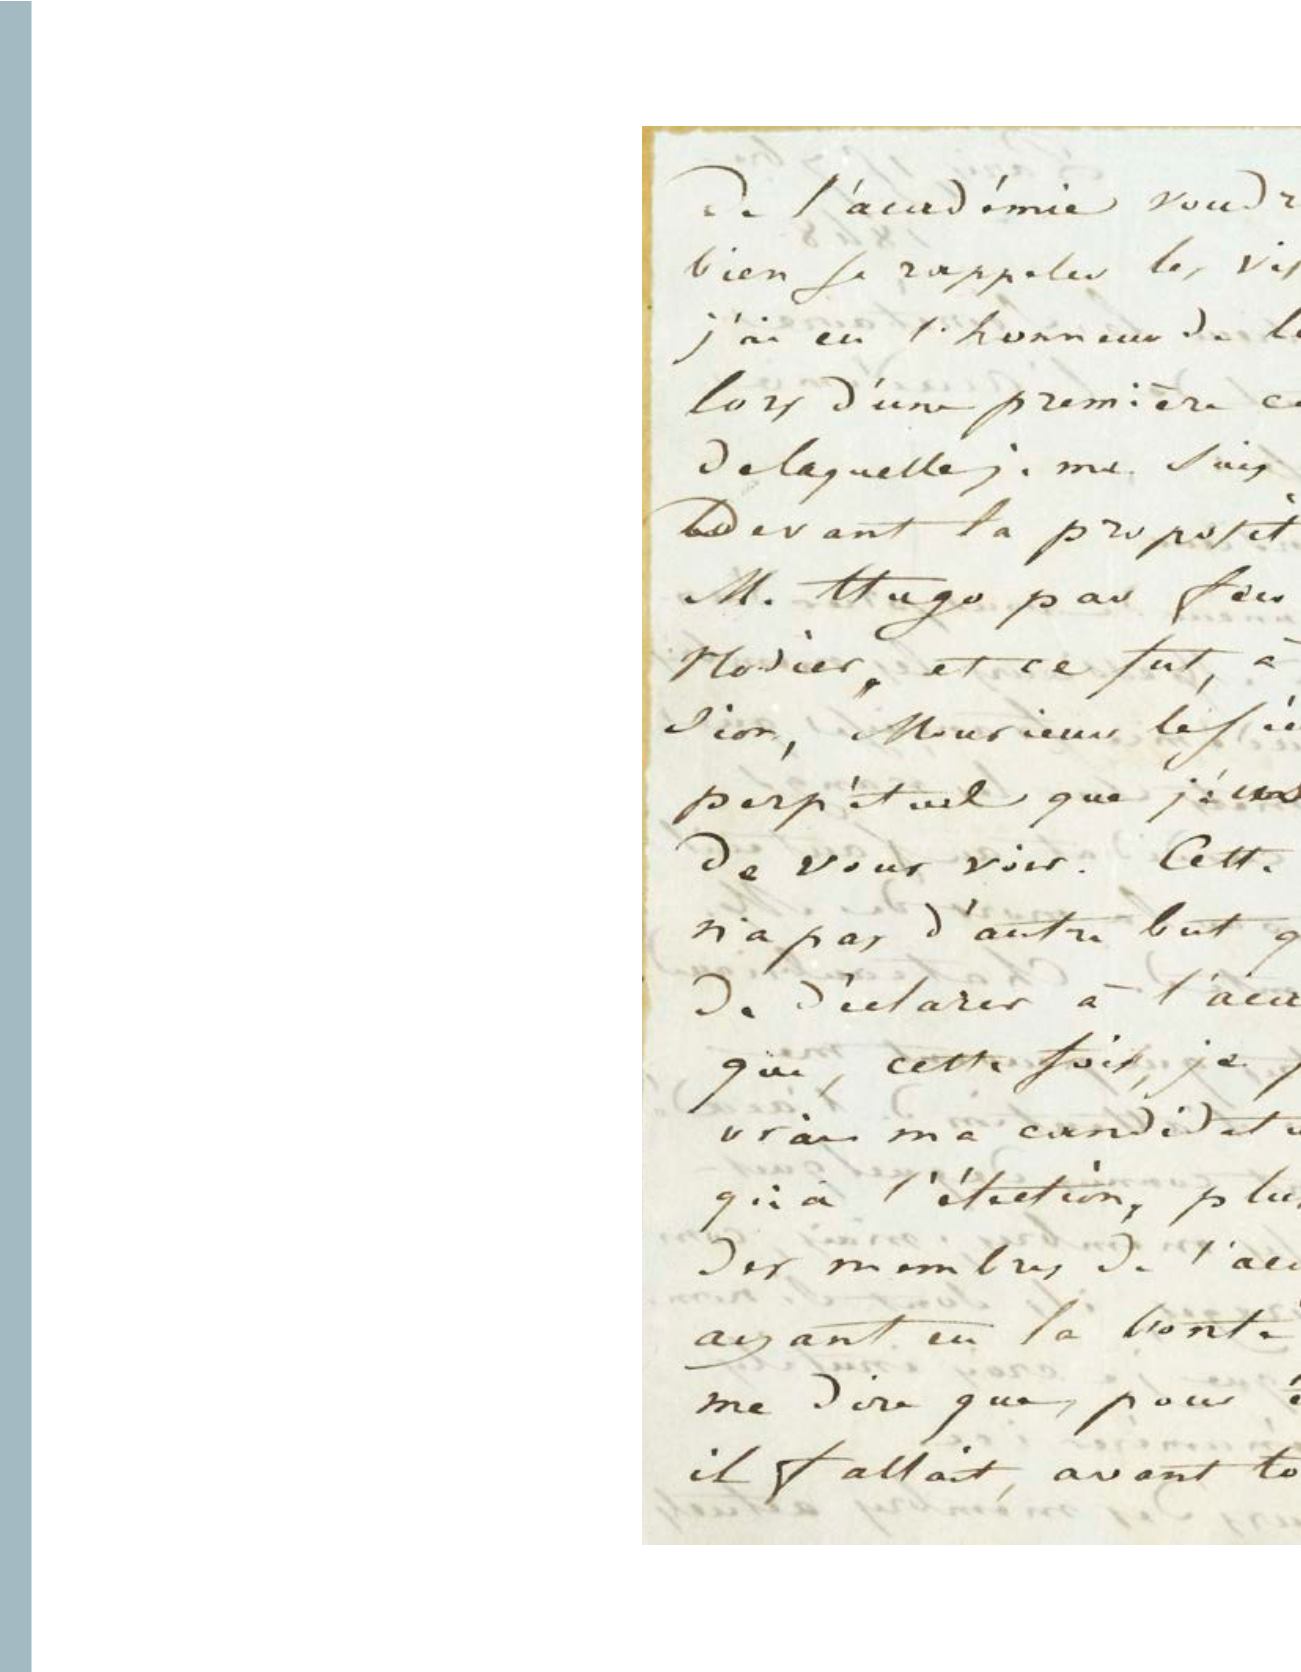 de l'académie voudr
bien se rappeler les vis
j'ai eu l'honneur de le
lors d'une première ca
delaquelle je me suis
Devant la proposit
M. Hugo par feu
Nodier, et ce fut, à
sion, Monsieur le sec
perpétuel que j'eus
de vous voir. Cette
n'a pas d'autre but q
de déclarer à l'aca
que, cette fois, je p
vrai ma candidatu
qu'à l'élection, plus
des membres de l'aca
ayant eu la bonté
me dire que, pour ê
il fallait, avant to